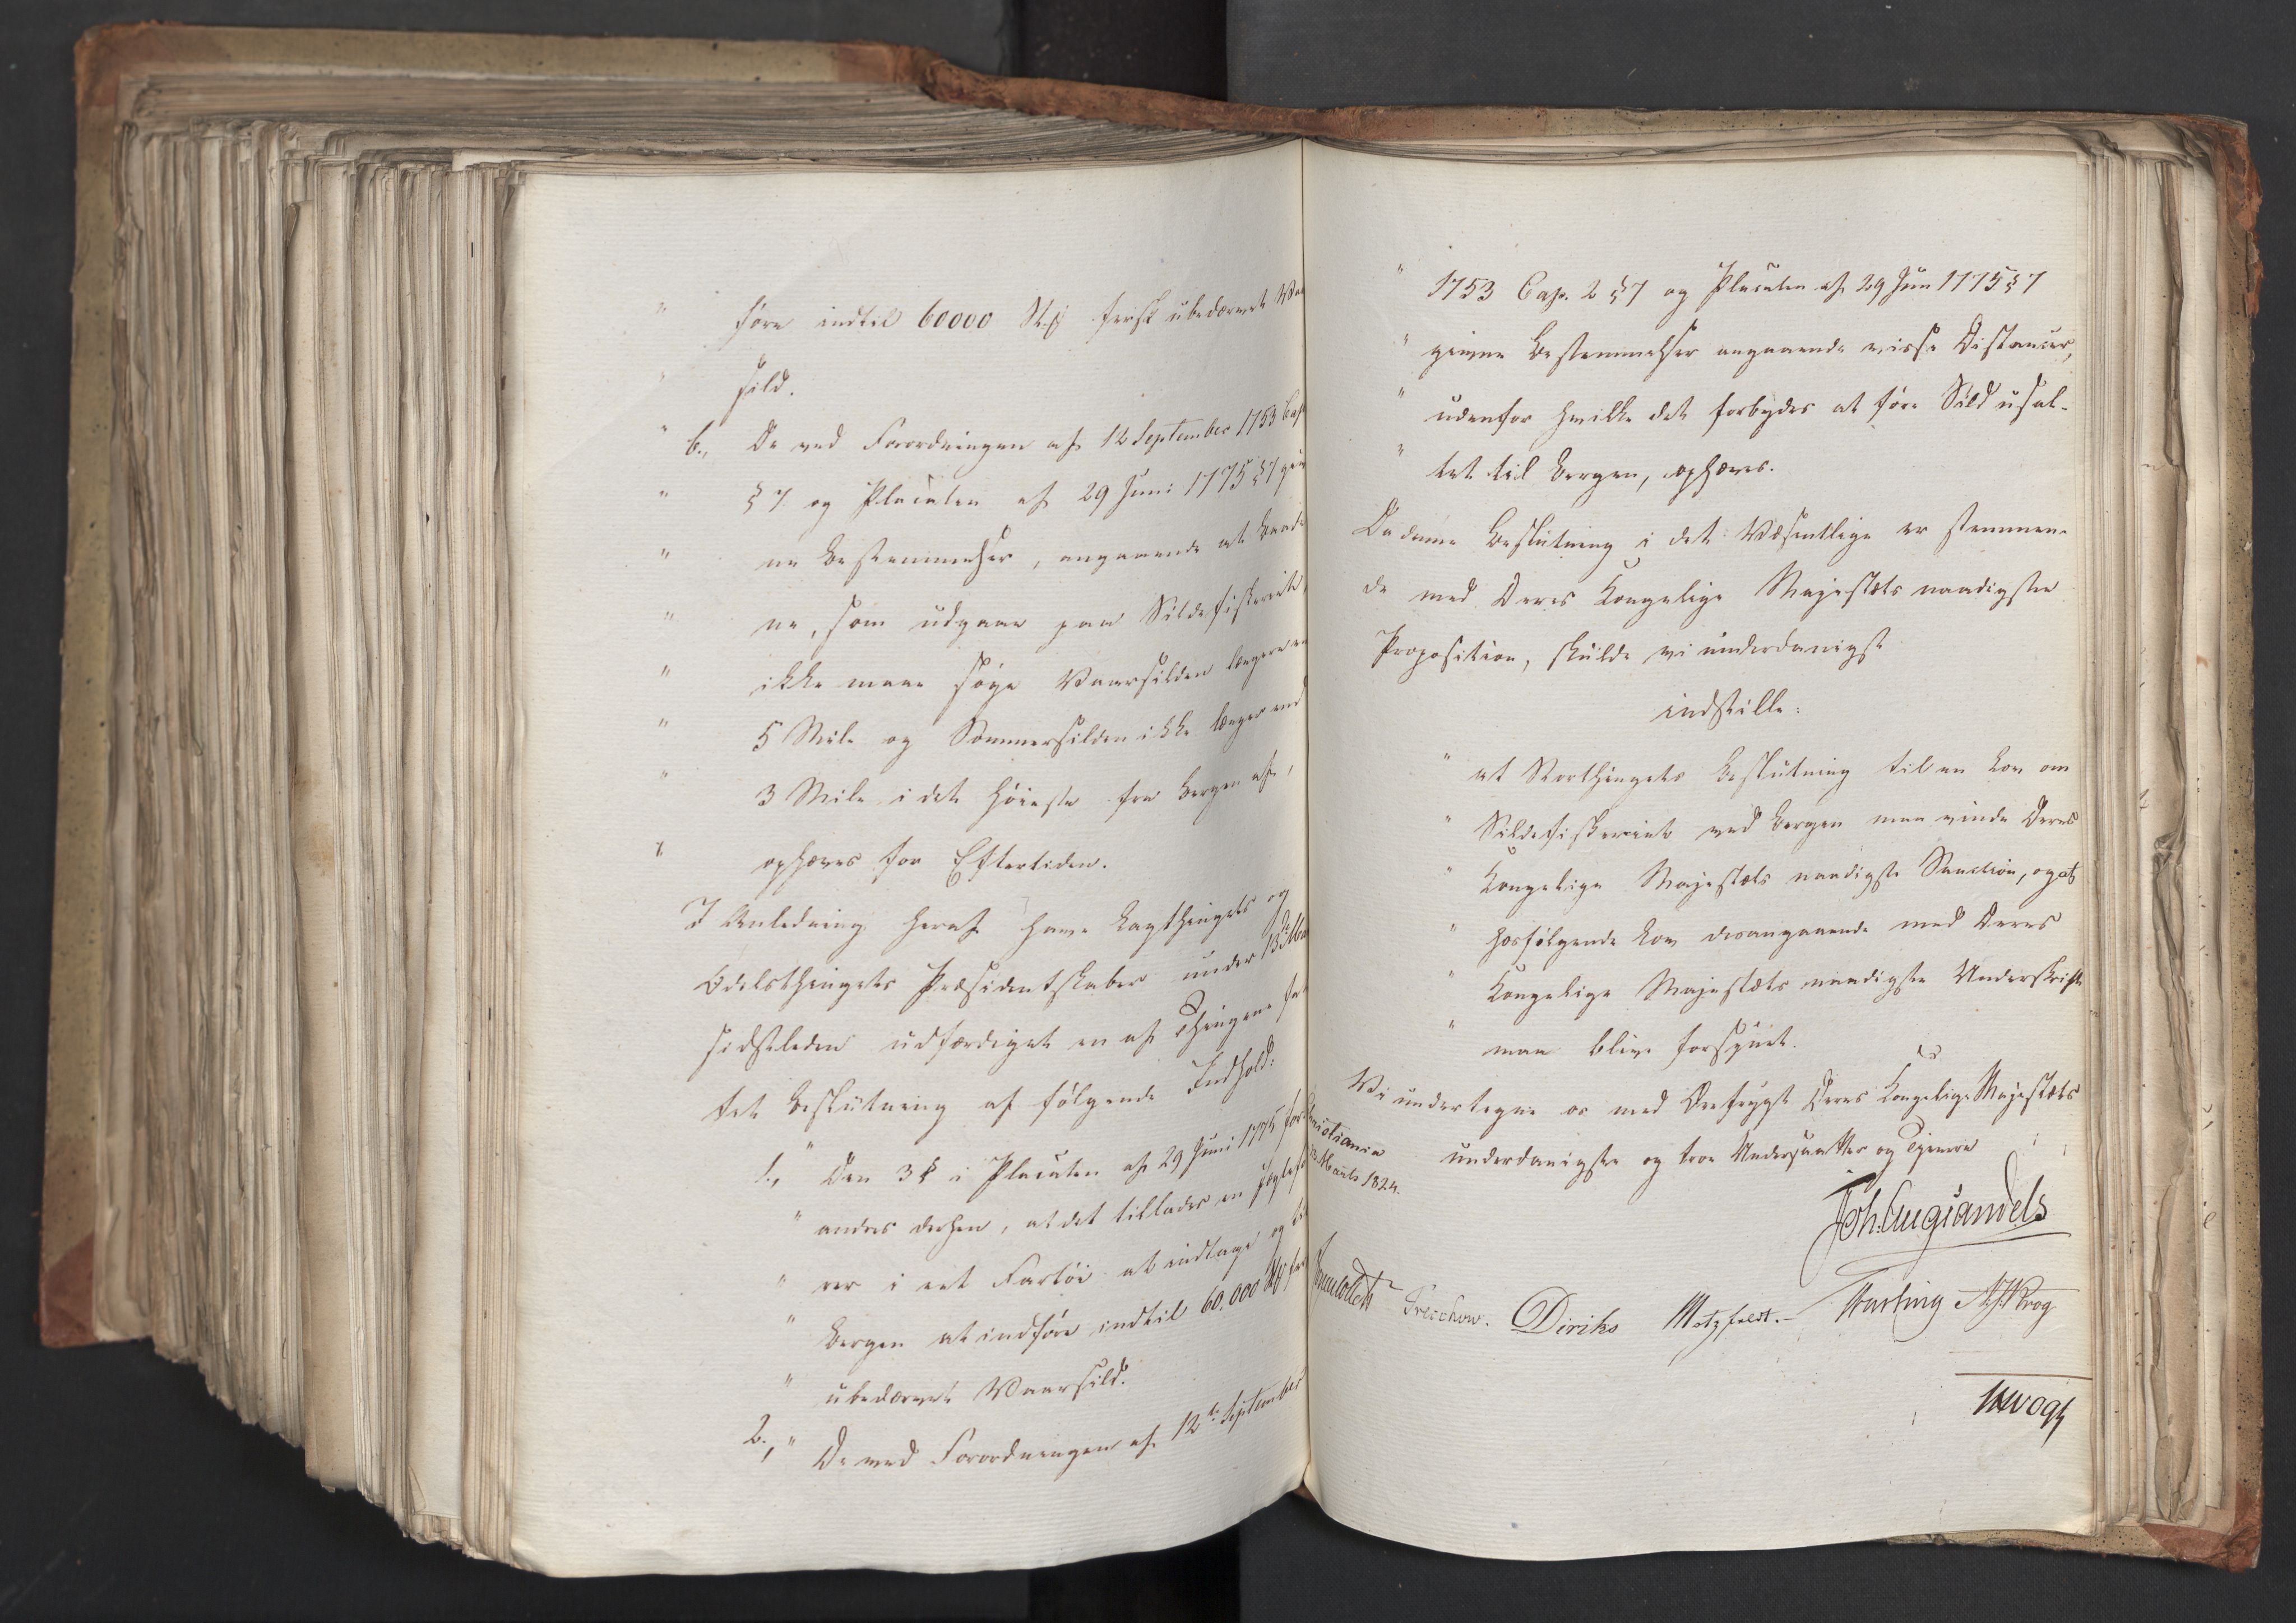 " føre indtil 60000 St. fersk ubedærvet Vaar
" sild.
" b., De ved Forordningen af 12 September 1753 Cap
" § 7 og Placaten af 29 Juni 1775 § 7 giv
" ne Bestemmelser, angaaende at Baade
" ne, som udgaae paa Sildefiskeriet,
" ikke maae søge Vaarsilden længere en
" 5 Mile og Sommersilden ikke længer end
" 3 Mile i det høieste fra Bergen af,
" ophæves for Eftertiden.
I Anledning heraf have Lagthingets og
Odelsthingets Præsidentskaber under 13de Ma
sidstleden udfærdiget en af Thingene fat
tet Beslutning af følgende Indhold:
1., " Den 3 § i Placaten af 29 Juni 1775 for
" andres derhen, at det tillades en
" rer i eet Fartøi at indtage og til
" Bergen at indføre indtil 60,000 St fer
" ubedærvet Vaarsild.
2., " De ved Forordningen af 12te September
" 1753 Cap. 2 § 7 og Placaten af 29 Jun 1775 § 7
" givne Bestemmelser angaaende visse Distancer,
" udenfor hvilke det forbydes at føre Sild usal-
" tet til Bergen, ophæves.
Da denne Beslutning i det Væsentlige er stemmen-
de med Deres Kongelige Majestæts naadigste
Proposition, skulde vi underdanigst
indstille:
" at Storthingets Beslutning til en Lov om
" Sildefiskeriet ved Bergen maa vinde Deres
" Kongelige Majestæts naadigste Sanction, og at
" hosfølgende Lov desangaaende med Deres
" Kongelige Majestæts naadigste Underskrift
" maa blive forsynet.
Vi undertegne os med Dybfrygt Deres Kongelige Majestæts
underdanigste og troe Undersaatter og Tjenere
Christiania
Marts 1824.
Joh. Aug Sandels
Sommerfeldt Treschow. Diriks Motzfeldt. Fasting Krog
Vogt